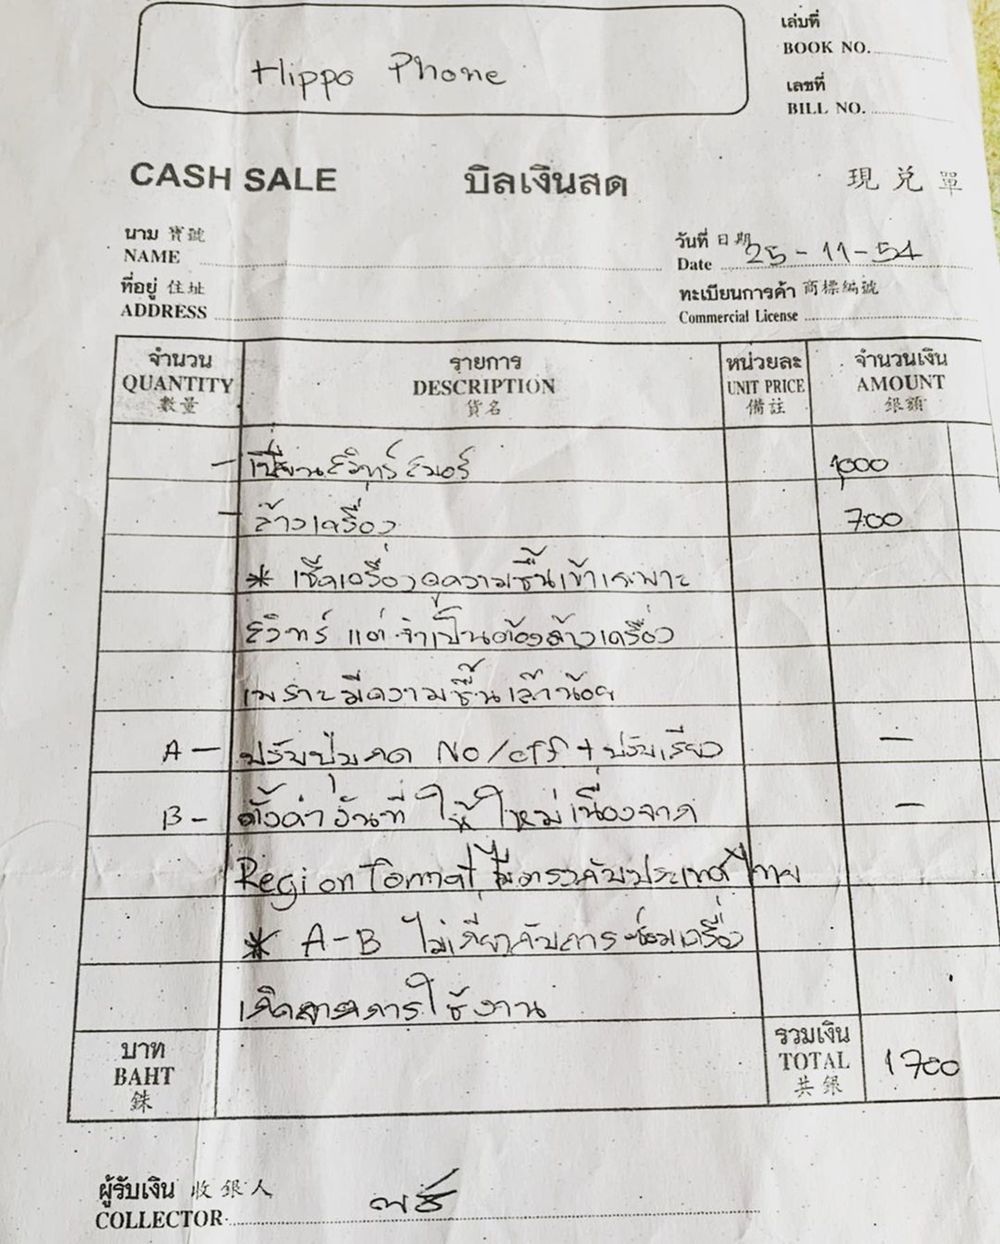 Hippo Phone
เล่มที่
BOOK NO.
เลขที่
BILL NO.
CASH SALE บิลเงินสด 現兑單
นาม 寶號
NAME
วันที่ 日期
Date 25-11-54
ที่อยู่ 住址
ADDRESS
ทะเบียนการค้า 商標編號
Commercial License
จำนวน รายการ หน่วยละ จำนวนเงิน
QUANTITY DESCRIPTION UNIT PRICE AMOUNT
數量 貨名 備註 銀額
- เปลี่ยนสวิทช์โฮม 1,000
- ล้างเครื่อง 700
* เช็คเครื่องดูความชื้นเข้าเฉพาะ
สวิทช์ แต่จำเป็นต้องล้างเครื่อง
เพราะมีความชื้นเล็กน้อย
A - ปรับปุ่มกด No/off + ปรับเสียง -
B - ตั้งค่าวันที่ให้ใหม่เนื่องจาก -
Region Format ไม่ตรงกับประเทศไทย
* A-B ไม่เกี่ยวกับการซ่อมเครื่อง
เกิดจากการใช้งาน
บาท รวมเงิน
BAHT TOTAL 1700
銖 共銀
ผู้รับเงิน 收銀人
COLLECTOR